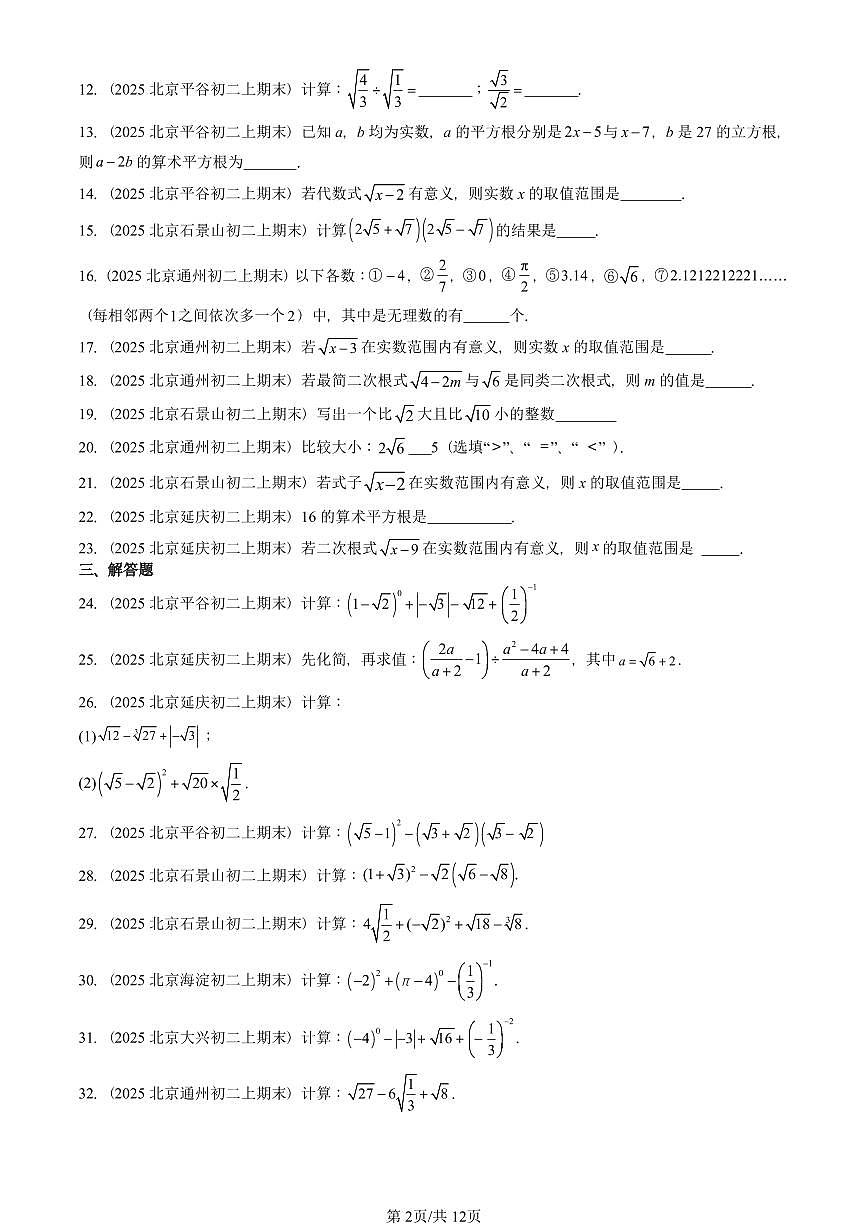 12. (2025 北京平谷初二上期末) 计算：√(4/3) ÷ √(1/3) = _______；√3/√2 = _______.
13. (2025 北京平谷初二上期末) 已知 a, b 均为实数, a 的平方根分别是 2x−5 与 x−7, b 是 27 的立方根,
则 a−2b 的算术平方根为_______.
14. (2025 北京平谷初二上期末) 若代数式 √(x−2) 有意义, 则实数 x 的取值范围是________.
15. (2025 北京石景山初二上期末) 计算 (2√5+√7)(2√5−√7) 的结果是_____.
16. (2025 北京通州初二上期末) 以下各数：① −4, ② 2/7, ③ 0, ④ π/2, ⑤ 3.14, ⑥ √6, ⑦ 2.1212212221……
(每相邻两个1之间依次多一个 2) 中, 其中是无理数的有______个.
17. (2025 北京通州初二上期末) 若 √(x−3) 在实数范围内有意义, 则实数 x 的取值范围是______.
18. (2025 北京通州初二上期末) 若最简二次根式 √(4−2m) 与 √6 是同类二次根式, 则 m 的值是______.
19. (2025 北京石景山初二上期末) 写出一个比 √2 大且比 √10 小的整数________
20. (2025 北京通州初二上期末) 比较大小：2√6 ___5 (选填“>”、“ =”、“ <” ).
21. (2025 北京石景山初二上期末) 若式子 √(x−2) 在实数范围内有意义, 则 x 的取值范围是_____.
22. (2025 北京延庆初二上期末) 16 的算术平方根是___________.
23. (2025 北京延庆初二上期末) 若二次根式 √(x−9) 在实数范围内有意义, 则 x 的取值范围是 _____.
三、解答题
24. (2025 北京平谷初二上期末) 计算：(1−√2)⁰ + |−√3| − √12 + (1/2)⁻¹
25. (2025 北京延庆初二上期末) 先化简, 再求值：(2a/(a+2) − 1) ÷ (a²−4a+4)/(a+2), 其中 a = √6 + 2.
26. (2025 北京延庆初二上期末) 计算：
(1) √12 − ∛27 + |−√3|；
(2) (√5−√2)² + √20 × √(1/2).
27. (2025 北京平谷初二上期末) 计算：(√5−1)² − (√3+√2)(√3−√2)
28. (2025 北京石景山初二上期末) 计算：(1+√3)² − √2(√6−√8).
29. (2025 北京石景山初二上期末) 计算：4√(1/2) + (−√2)² + √18 − ∛8.
30. (2025 北京海淀初二上期末) 计算：(−2)² + (π−4)⁰ − (1/3)⁻¹.
31. (2025 北京大兴初二上期末) 计算：(−4)⁰ − |−3| + √16 + (−1/3)⁻².
32. (2025 北京通州初二上期末) 计算：√27 − 6√(1/3) + √8.
第 2页/共 12页